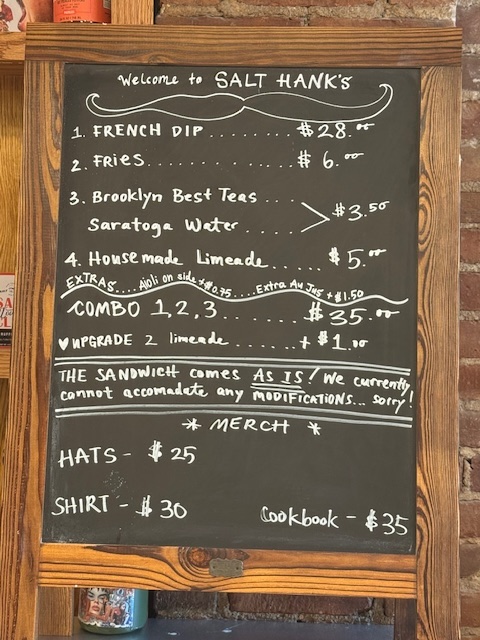 Welcome to SALT HANK'S
1. FRENCH DIP........ $28.00
2. FRIES............. $6.00
3. Brooklyn Best Teas ...
Saratoga Water .... > $3.50
4. Housemade Limeade...... $5.00
EXTRAS.... Aioli on side +$0.75 .... Extra Au Jus +$1.50
COMBO 1,2,3 ........ $35.00
♥ UPGRADE 2 limeade..... + $1.00
THE SANDWICH comes AS IS! We currently
cannot accomadate any MODIFICATIONS... sorry!
* MERCH *
HATS - $25
SHIRT - $30
Cookbook - $35